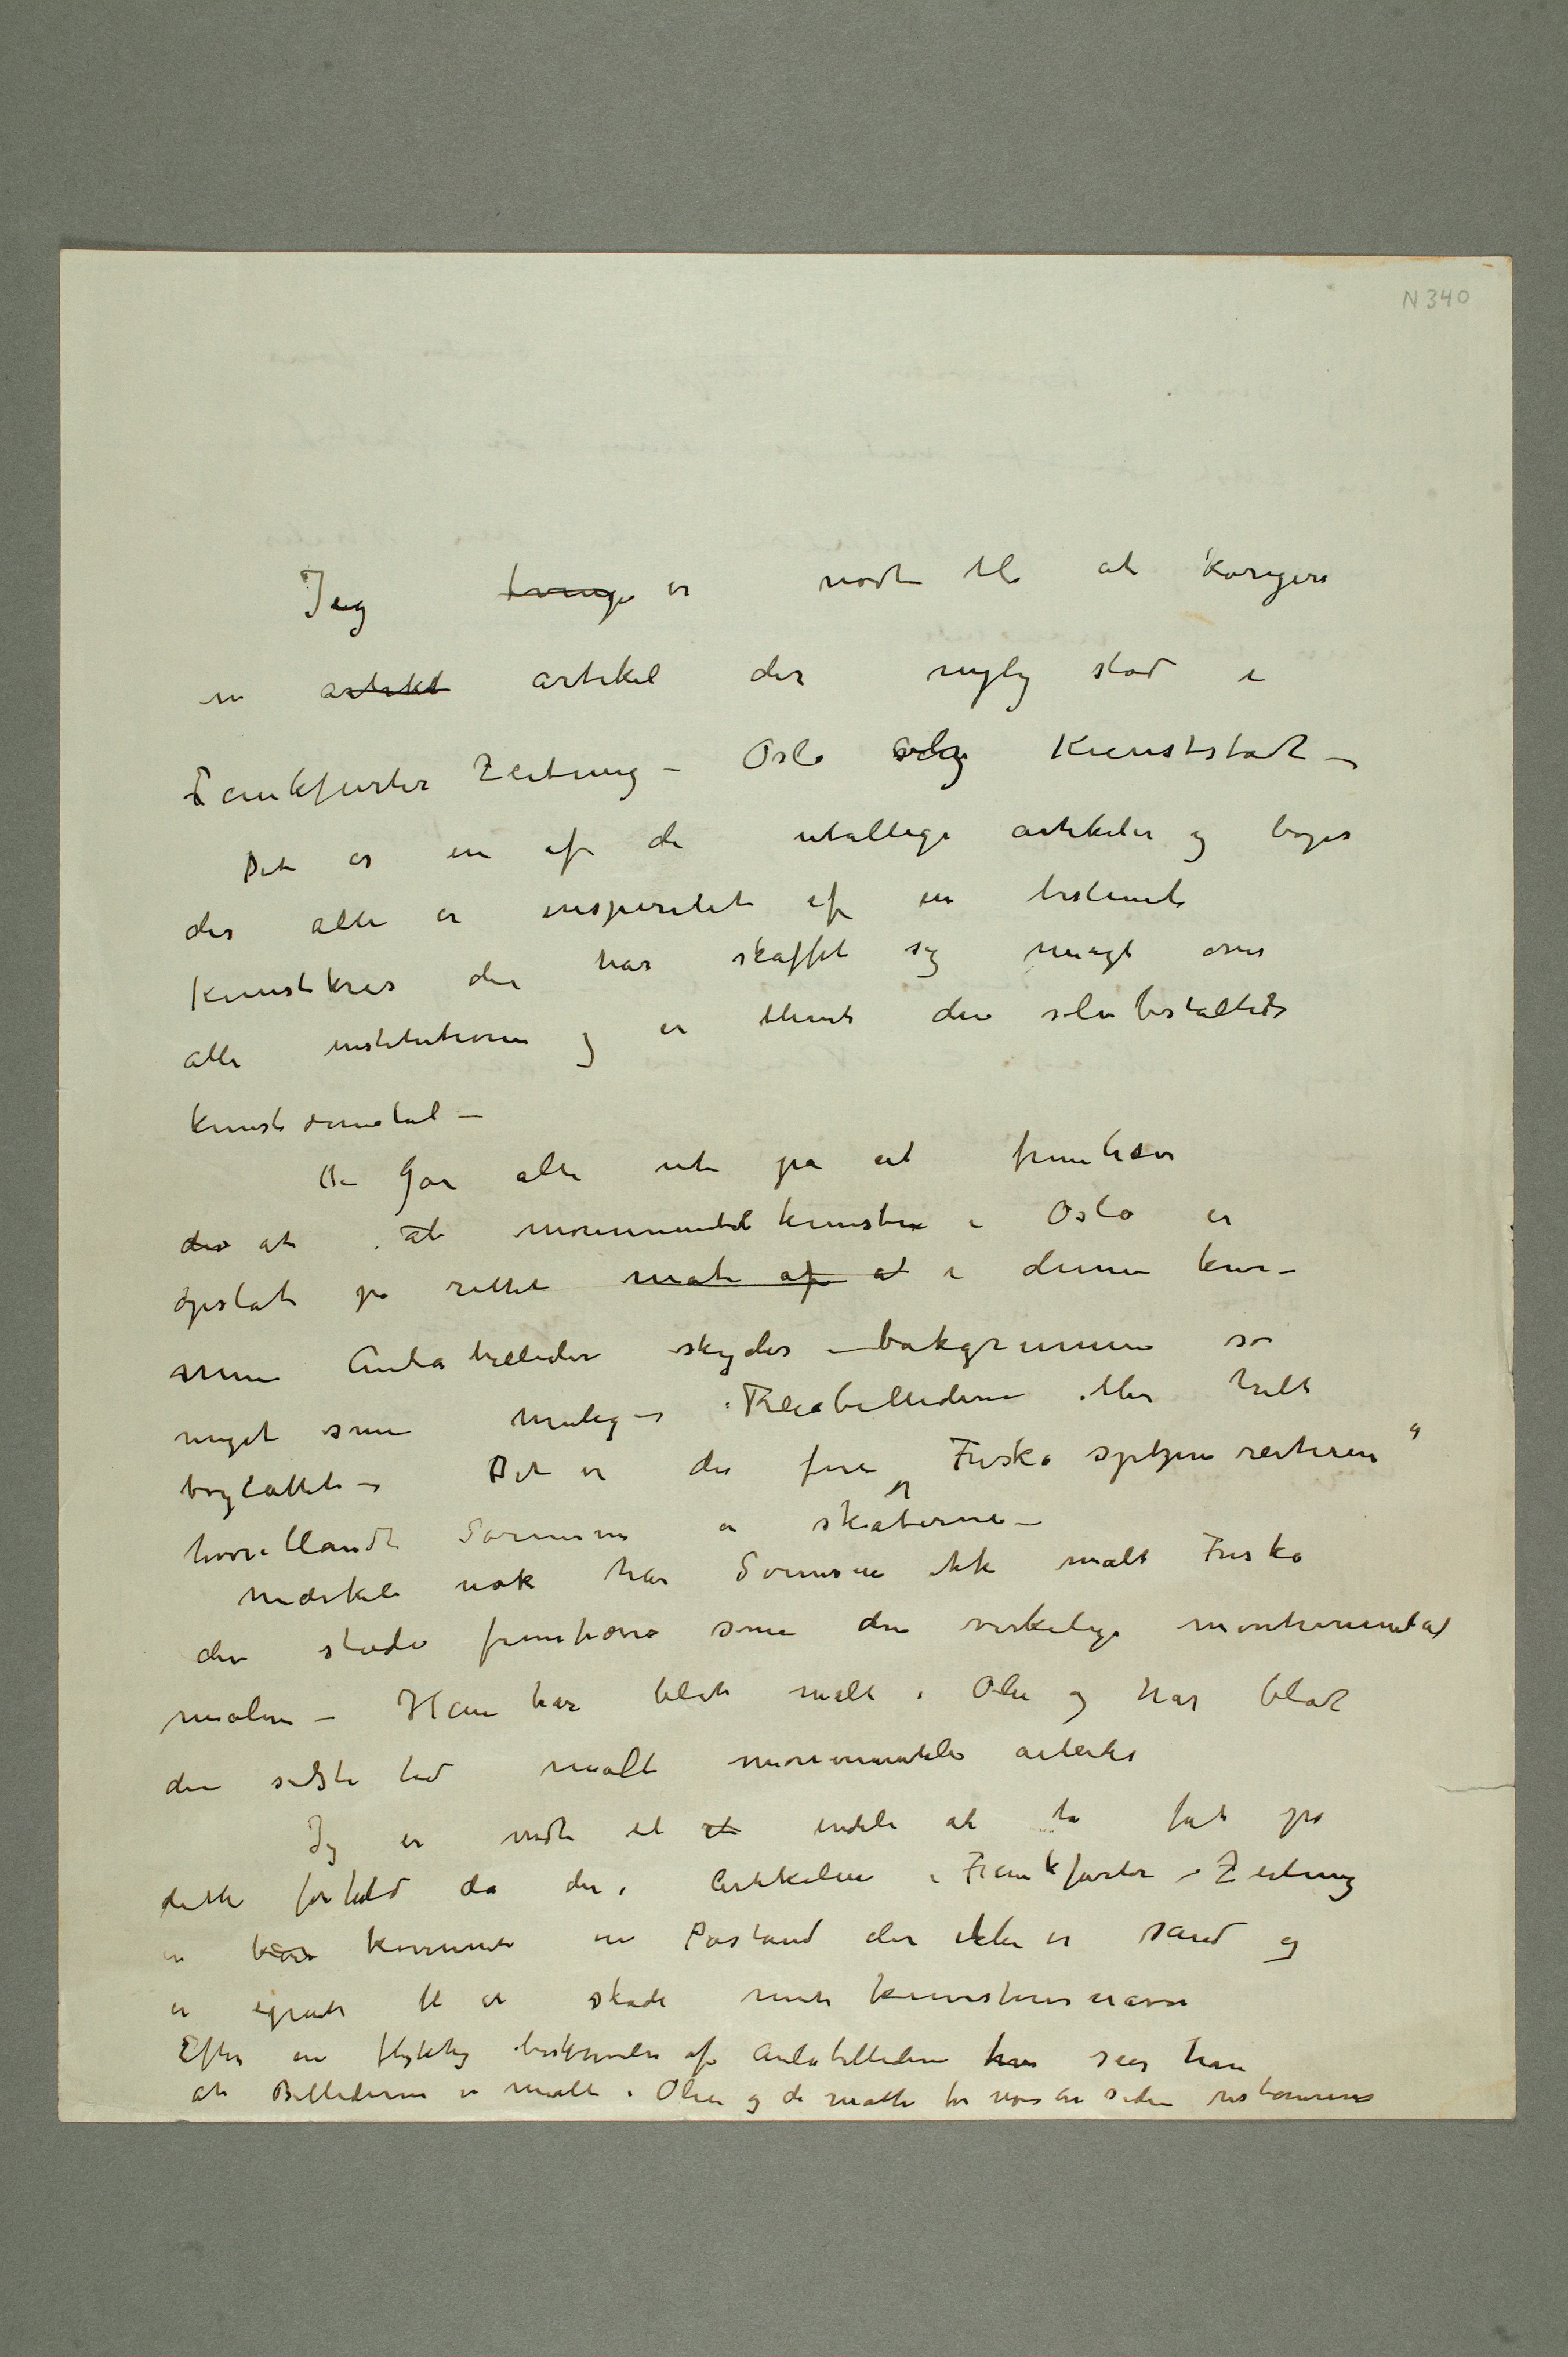 N 340
Jeg tvinges er nødt til at korigere
en artikel artikel der nylig stod i
Frankfurter Zeitung – Oslo Kunststadt –
Det er en af de utallige artikeler og bøger
der alle er insperitet af en bestemt
Kunstkres der har skaffet sig magt over
alle institutioner og er blevet den selvbestaltede
kunstdomstol –
De går alle ut på at fremhæve
det at at monumentalkunsten i Oslo er
opståt på rettet måte af at i denne
mine Aulabilleder skydes i bakgrunnen så
meget som mulig – Freiabillederne eller helt
bortglattet – Det er de fire „Fresko
hvoriblandt Sørensen er skaberne –
Mærkeli nok har Sørensen ikke malt Fresko
den stadi fremhæves som den virkelige monumental
maleren – Han har blot malt i Olie og har blot
den sidste tid malt monumentale arbeider
Jeg er nødt til at endeli at ta fat på
dette forhold da der i Artikelen i Frankfurter Zeitung
er kommet en Påstand der ikke er sand og
er egnet til at skade mit kunstnernavn
Efter en flyktig beskrivelse af Aulabillederne sier han
at Billederne er malt i Olie og de måtte for noen år siden restaureres